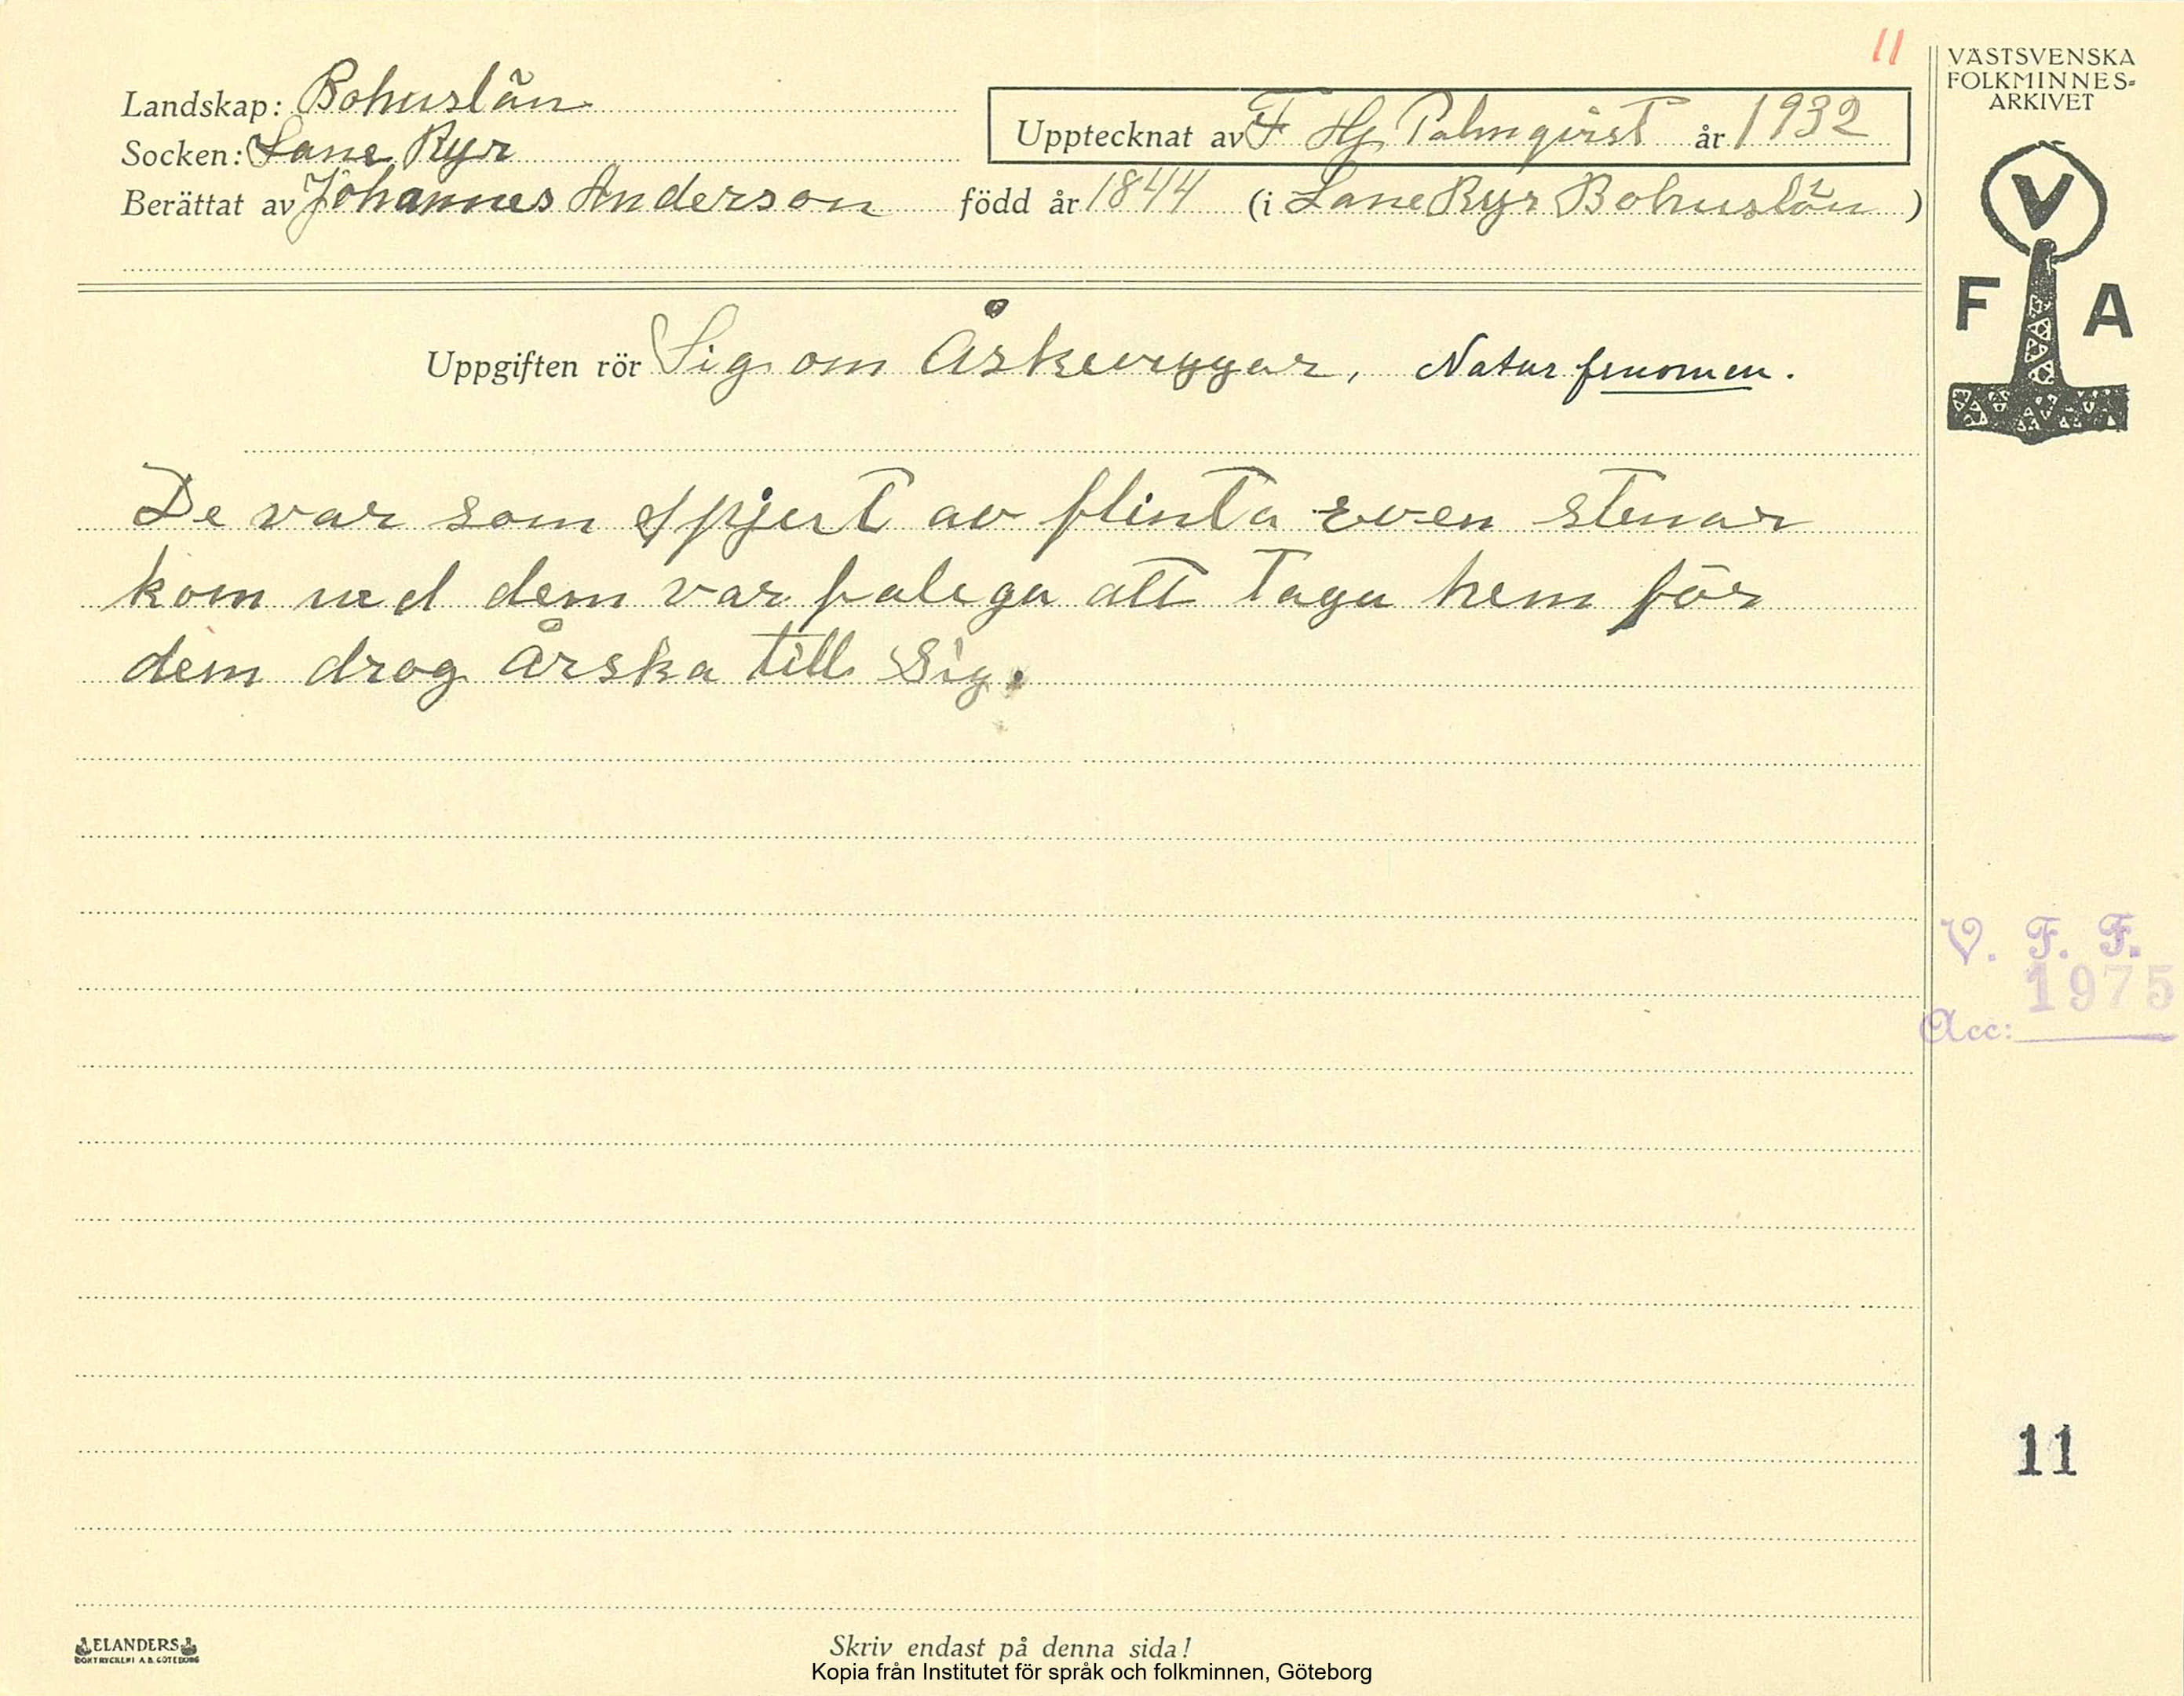 11
VÄSTSVENSKA
FOLKMINNES-
ARKIVET
Landskap: Bohuslän
Upptecknat av F Hj Palmqvist år 1932
Socken: Lane Ryr
Berättat av Johannes Anderson född år 1844 (i Lane Ryr Bohuslän)
V
F A
Uppgiften rör Sig om Åskeviggar, Natur fenomen.
De var som spjut av flinta even stenar
kom ned dem var faliga att Taga hem för
dem drog Årska till Sig.
V. F. F.
1975
Acc:
11
ELANDERS
BOKTRYCKERI A.B. GÖTEBORG
Skriv endast på denna sida!
Kopia från Institutet för språk och folkminnen, Göteborg